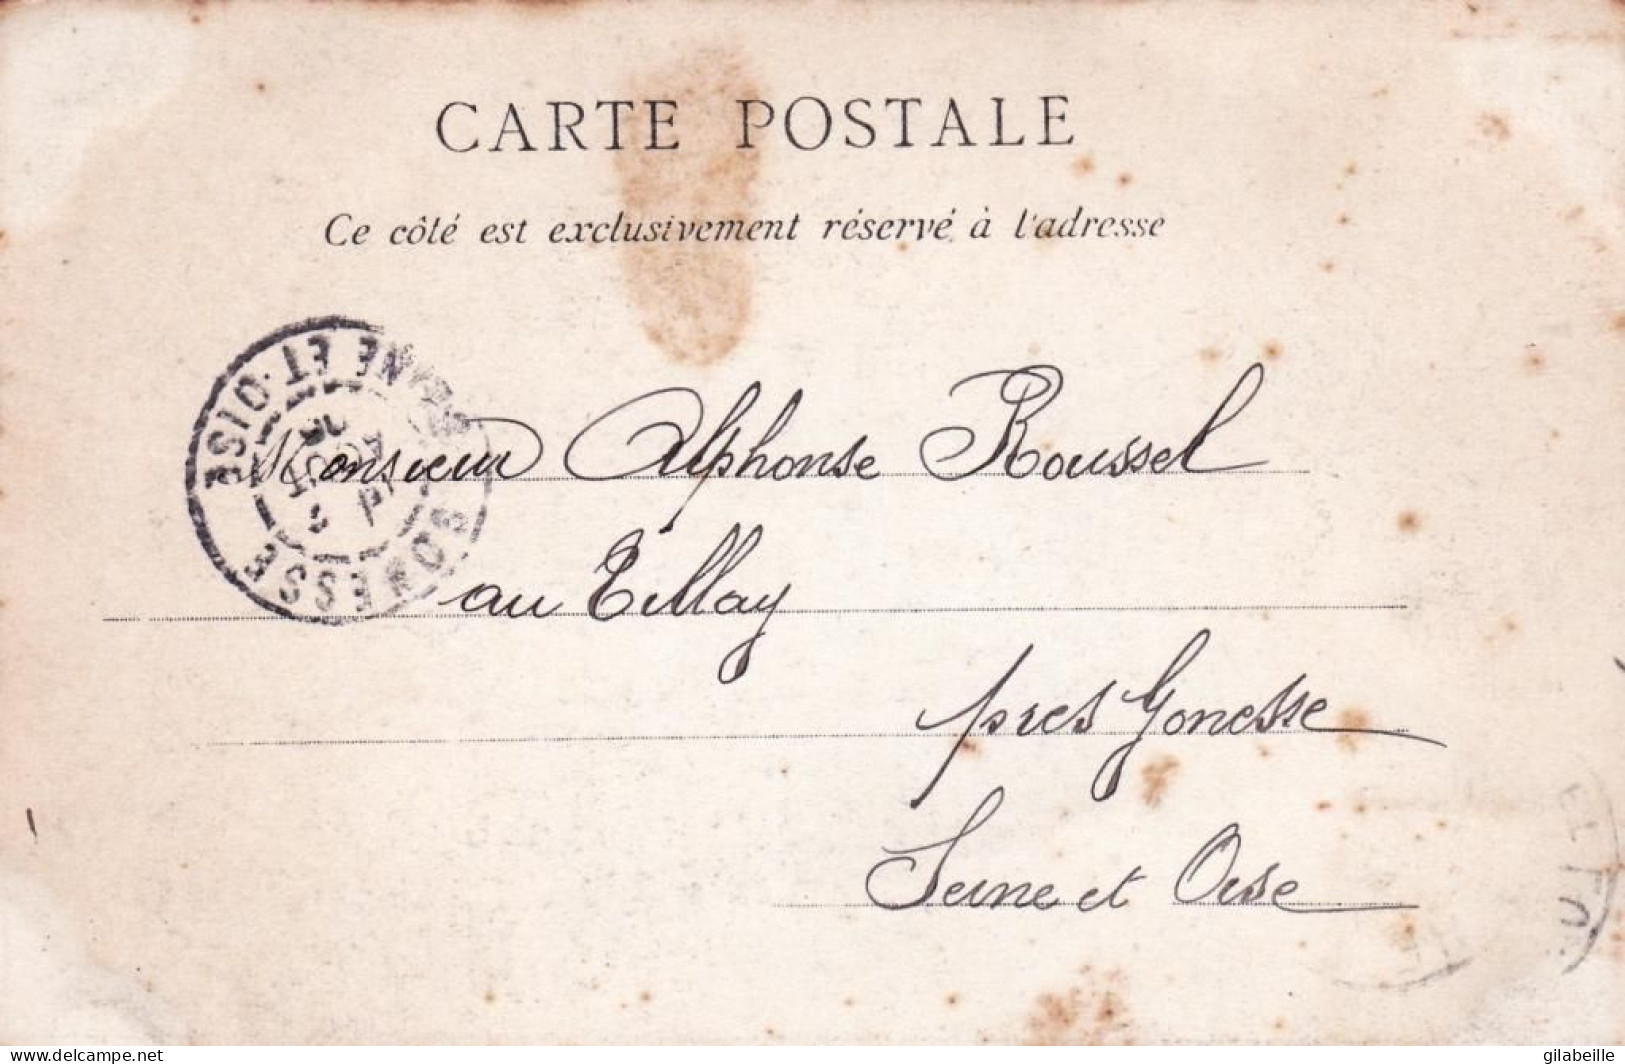 CARTE POSTALE
Ce côté est exclusivement réservé à l'adresse
GONESSE
SEINE ET-OISE
Monsieur Alphonse Roussel
au Tillay
pres Gonesse
Seine et Oise
www.delcampe.net
gilabeille